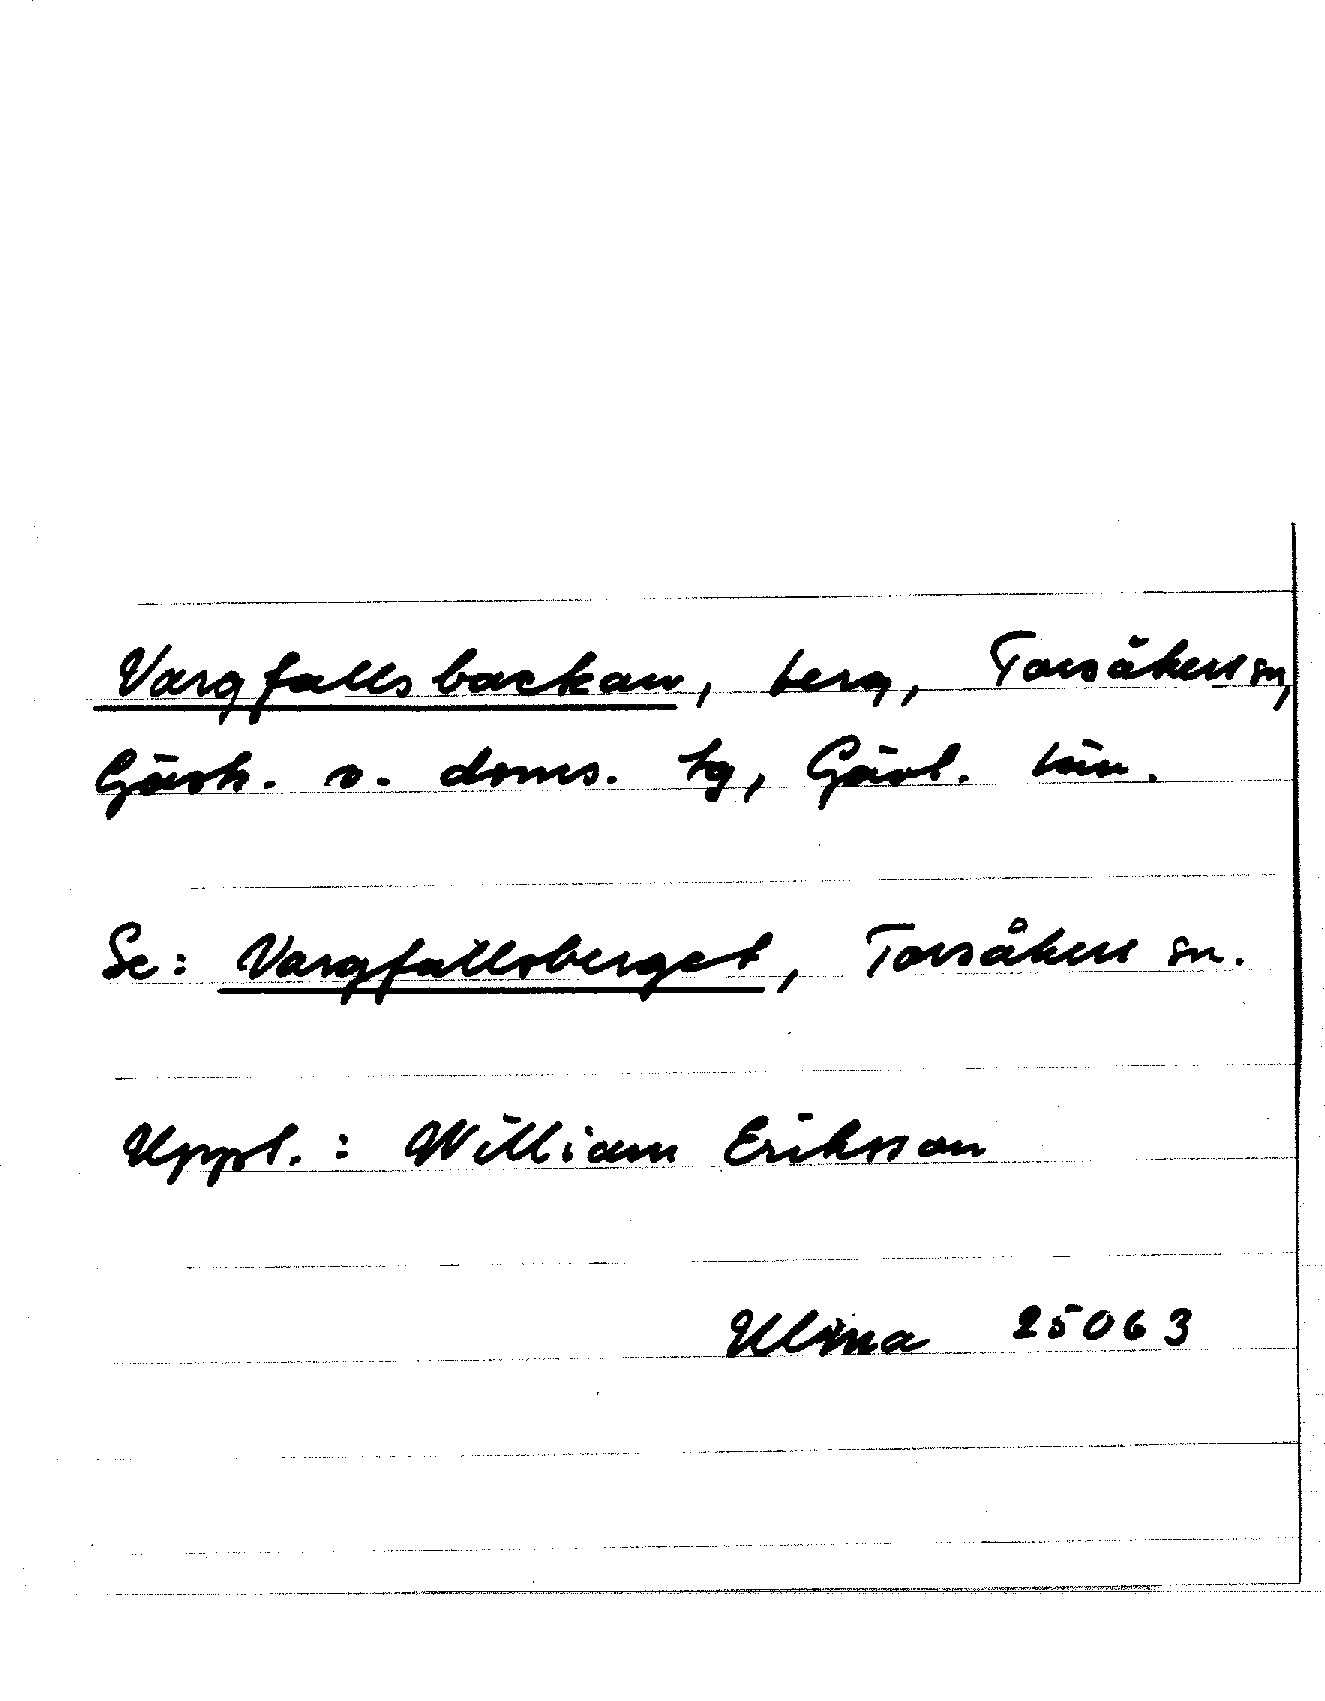 Vargfallsbackan, berg, Torsåkers sn,
Gästr. v. doms. tg, Gävl. län.
Se: Vargfallsberget, Torsåkers sn.
Uppl.: William Eriksson
Ulma 25063